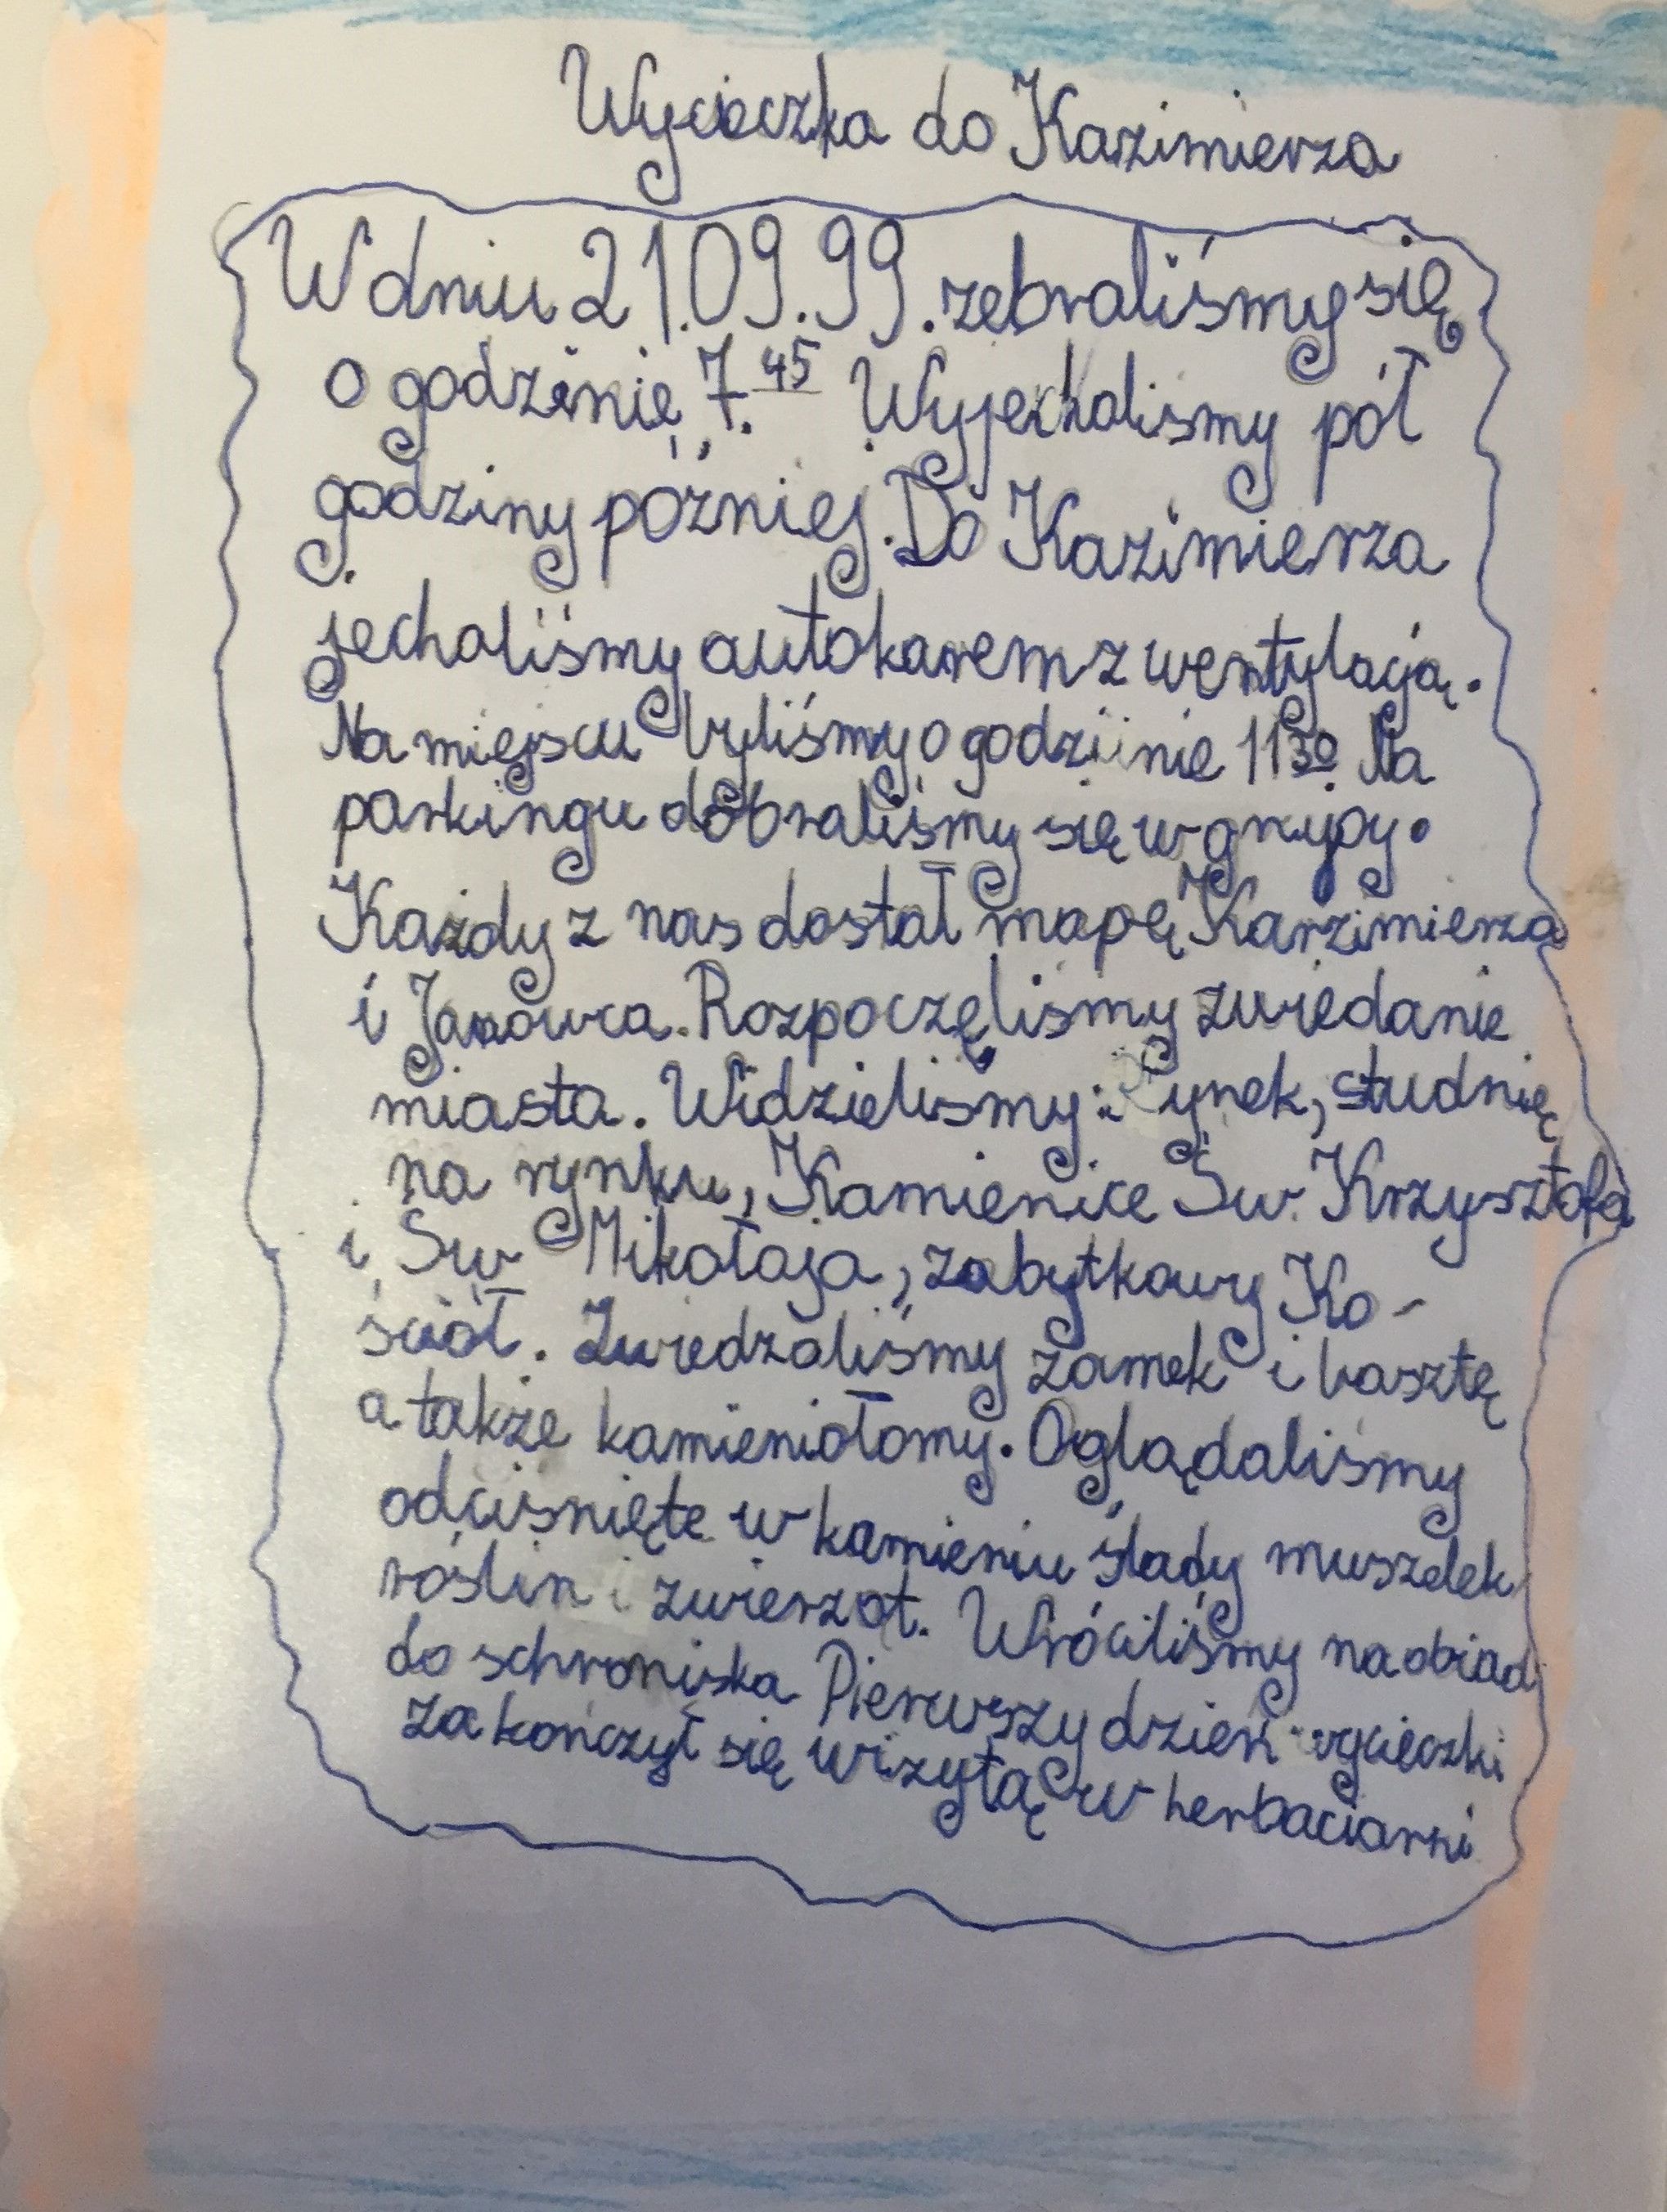 Wycieczka do Kazimierza
W dniu 21.09.99. zebraliśmy się
o godzinie 7.45 Wyjechaliśmy pół
godziny później. Do Kazimierza
jechaliśmy autokarem z wentylacją.
Na miejscu byliśmy o godzinie 11 30 Na
parkingu dobraliśmy się w grupy.
Każdy z nas dostał mapę Karzimierza
i Janowca. Rozpoczęliśmy zwiedanie
miasta. Widzieliśmy: Rynek, studnię
na rynku, Kamienice Św. Krzysztofa
i Św Mikołaja, zabytkowy Ko-
ściół. Zwiedzaliśmy zamek i basztę
a także kamieniołomy. Oglądaliśmy
odciśnięte w kamieniu ślady muszelek
roślin i zwierząt. Wróciliśmy na obiad
do schroniska Pierwszy dzień wycieczki
zakończył się wizytą w herbaciarni